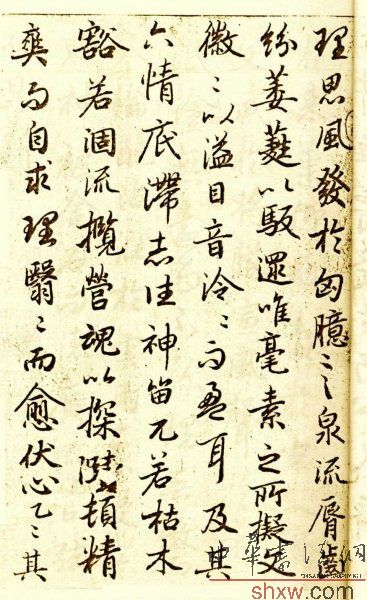 理思風發於匈臆言泉流脣齒
紛葳蕤以馺遝唯毫素之所擬文
徽〻以溢目音泠〻而盈耳及其
六情底滯志往神留兀若枯木
豁若涸流攬營魂以探賾頓精
爽而自求理翳〻而愈伏心乙〻其
shxw.com